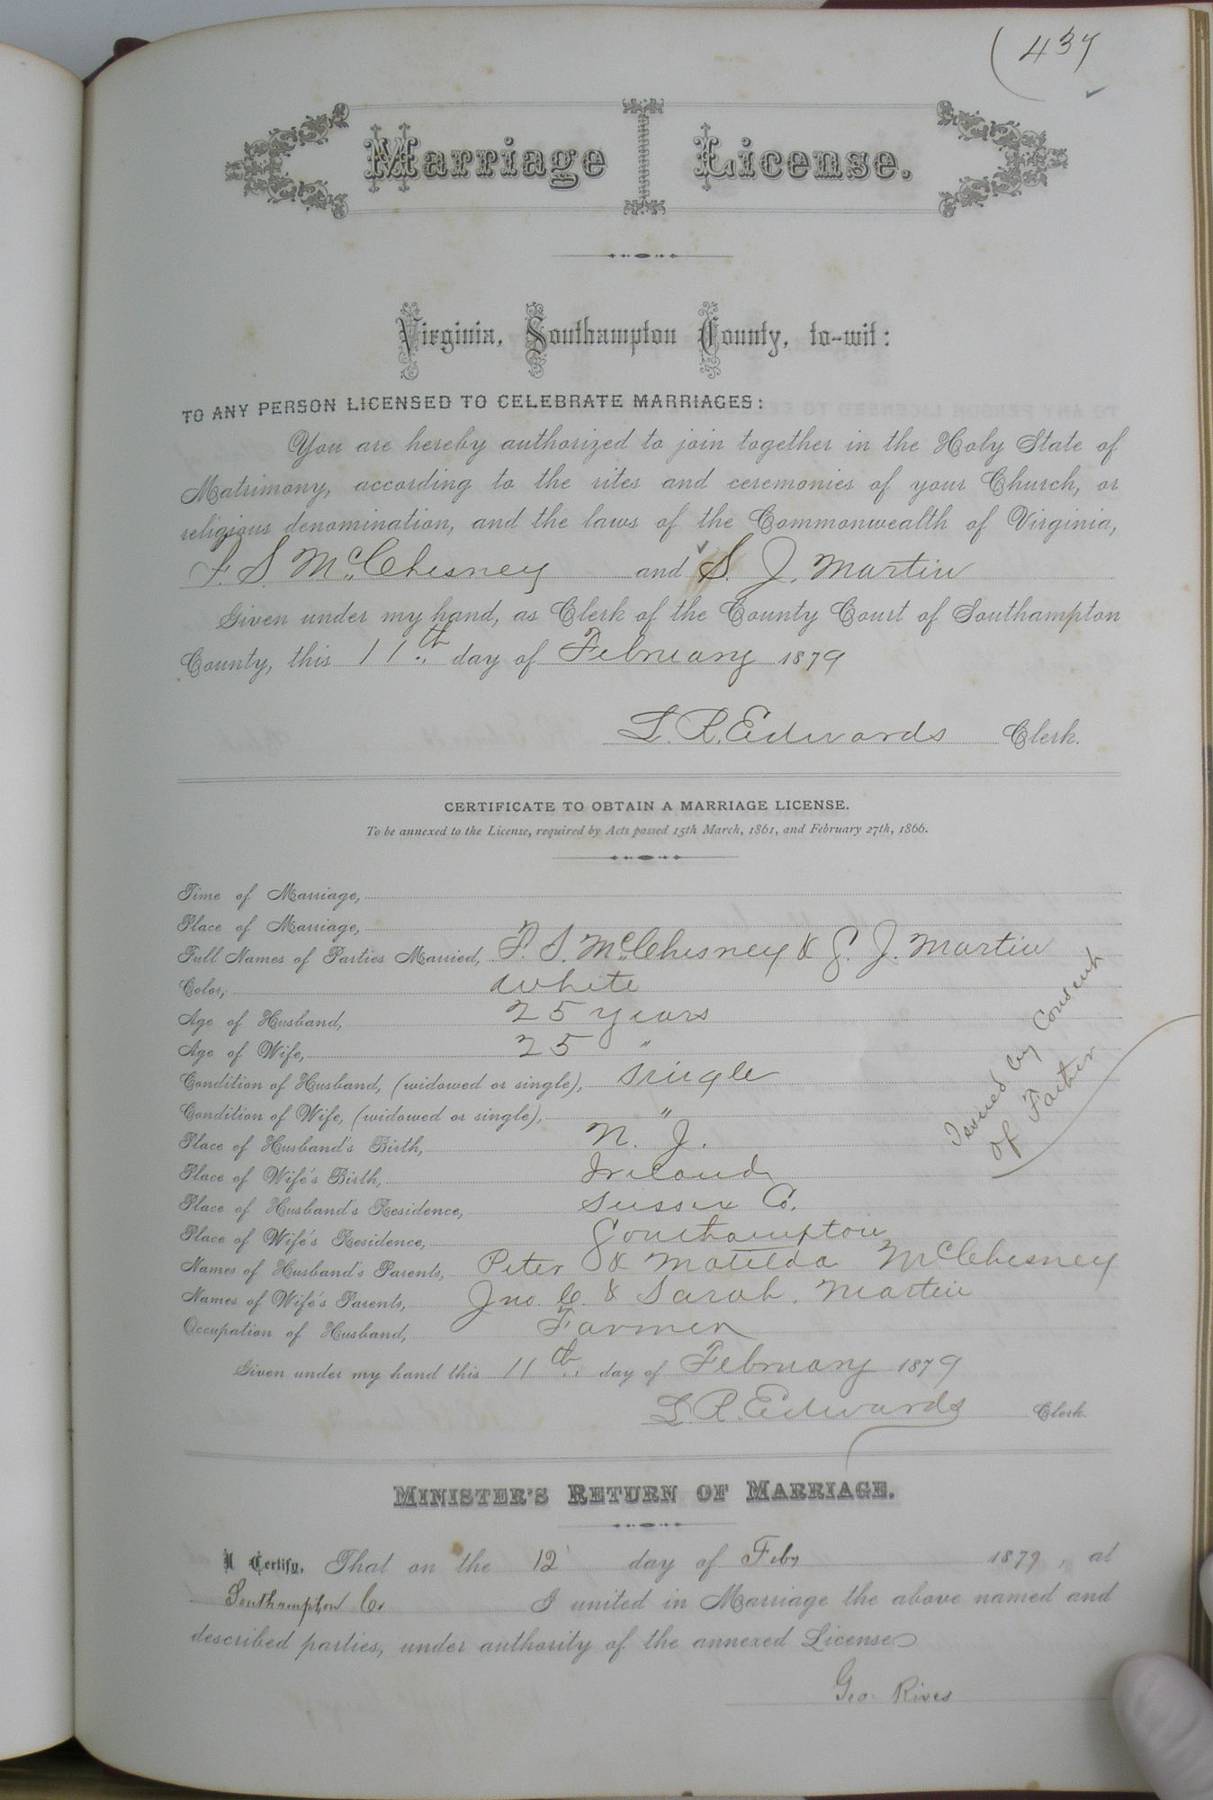 (437
Marriage License.
Virginia, Southampton County, to-wit:
TO ANY PERSON LICENSED TO CELEBRATE MARRIAGES:
You are hereby authorized to join together in the Holy State of
Matrimony, according to the rites and ceremonies of your Church, or
religious denomination, and the laws of the Commonwealth of Virginia,
F. S. McChesney and S. J. Martin
Given under my hand, as Clerk of the County Court of Southampton
County, this 11th day of February 1879
L. R. Edwards Clerk.
CERTIFICATE TO OBTAIN A MARRIAGE LICENSE.
To be annexed to the License, required by Acts passed 15th March, 1861, and February 27th, 1866.
Time of Marriage,
Place of Marriage,
Full Names of Parties Married, F. S. McChesney & S. J. Martin
Color, White
Age of Husband, 25 years
Age of Wife, 25 "
Condition of Husband, (widowed or single), Single
Condition of Wife, (widowed or single), "
Place of Husband's Birth, N. J.
Place of Wife's Birth, Ireland
Place of Husband's Residence, Sussex Co.
Place of Wife's Residence, Southampton
Names of Husband's Parents, Peter & Matilda McChesney
Names of Wife's Parents, Jno. C. & Sarah. Martin
Occupation of Husband, Farmer
Issued by Consent
of Father
Given under my hand this 11th day of February 1879
L. R. Edwards Clerk.
MINISTER'S RETURN OF MARRIAGE.
I Certify, That on the 12 day of Feby 1879, at
Southampton Co. I united in Marriage the above named and
described parties, under authority of the annexed License
Geo. Rives